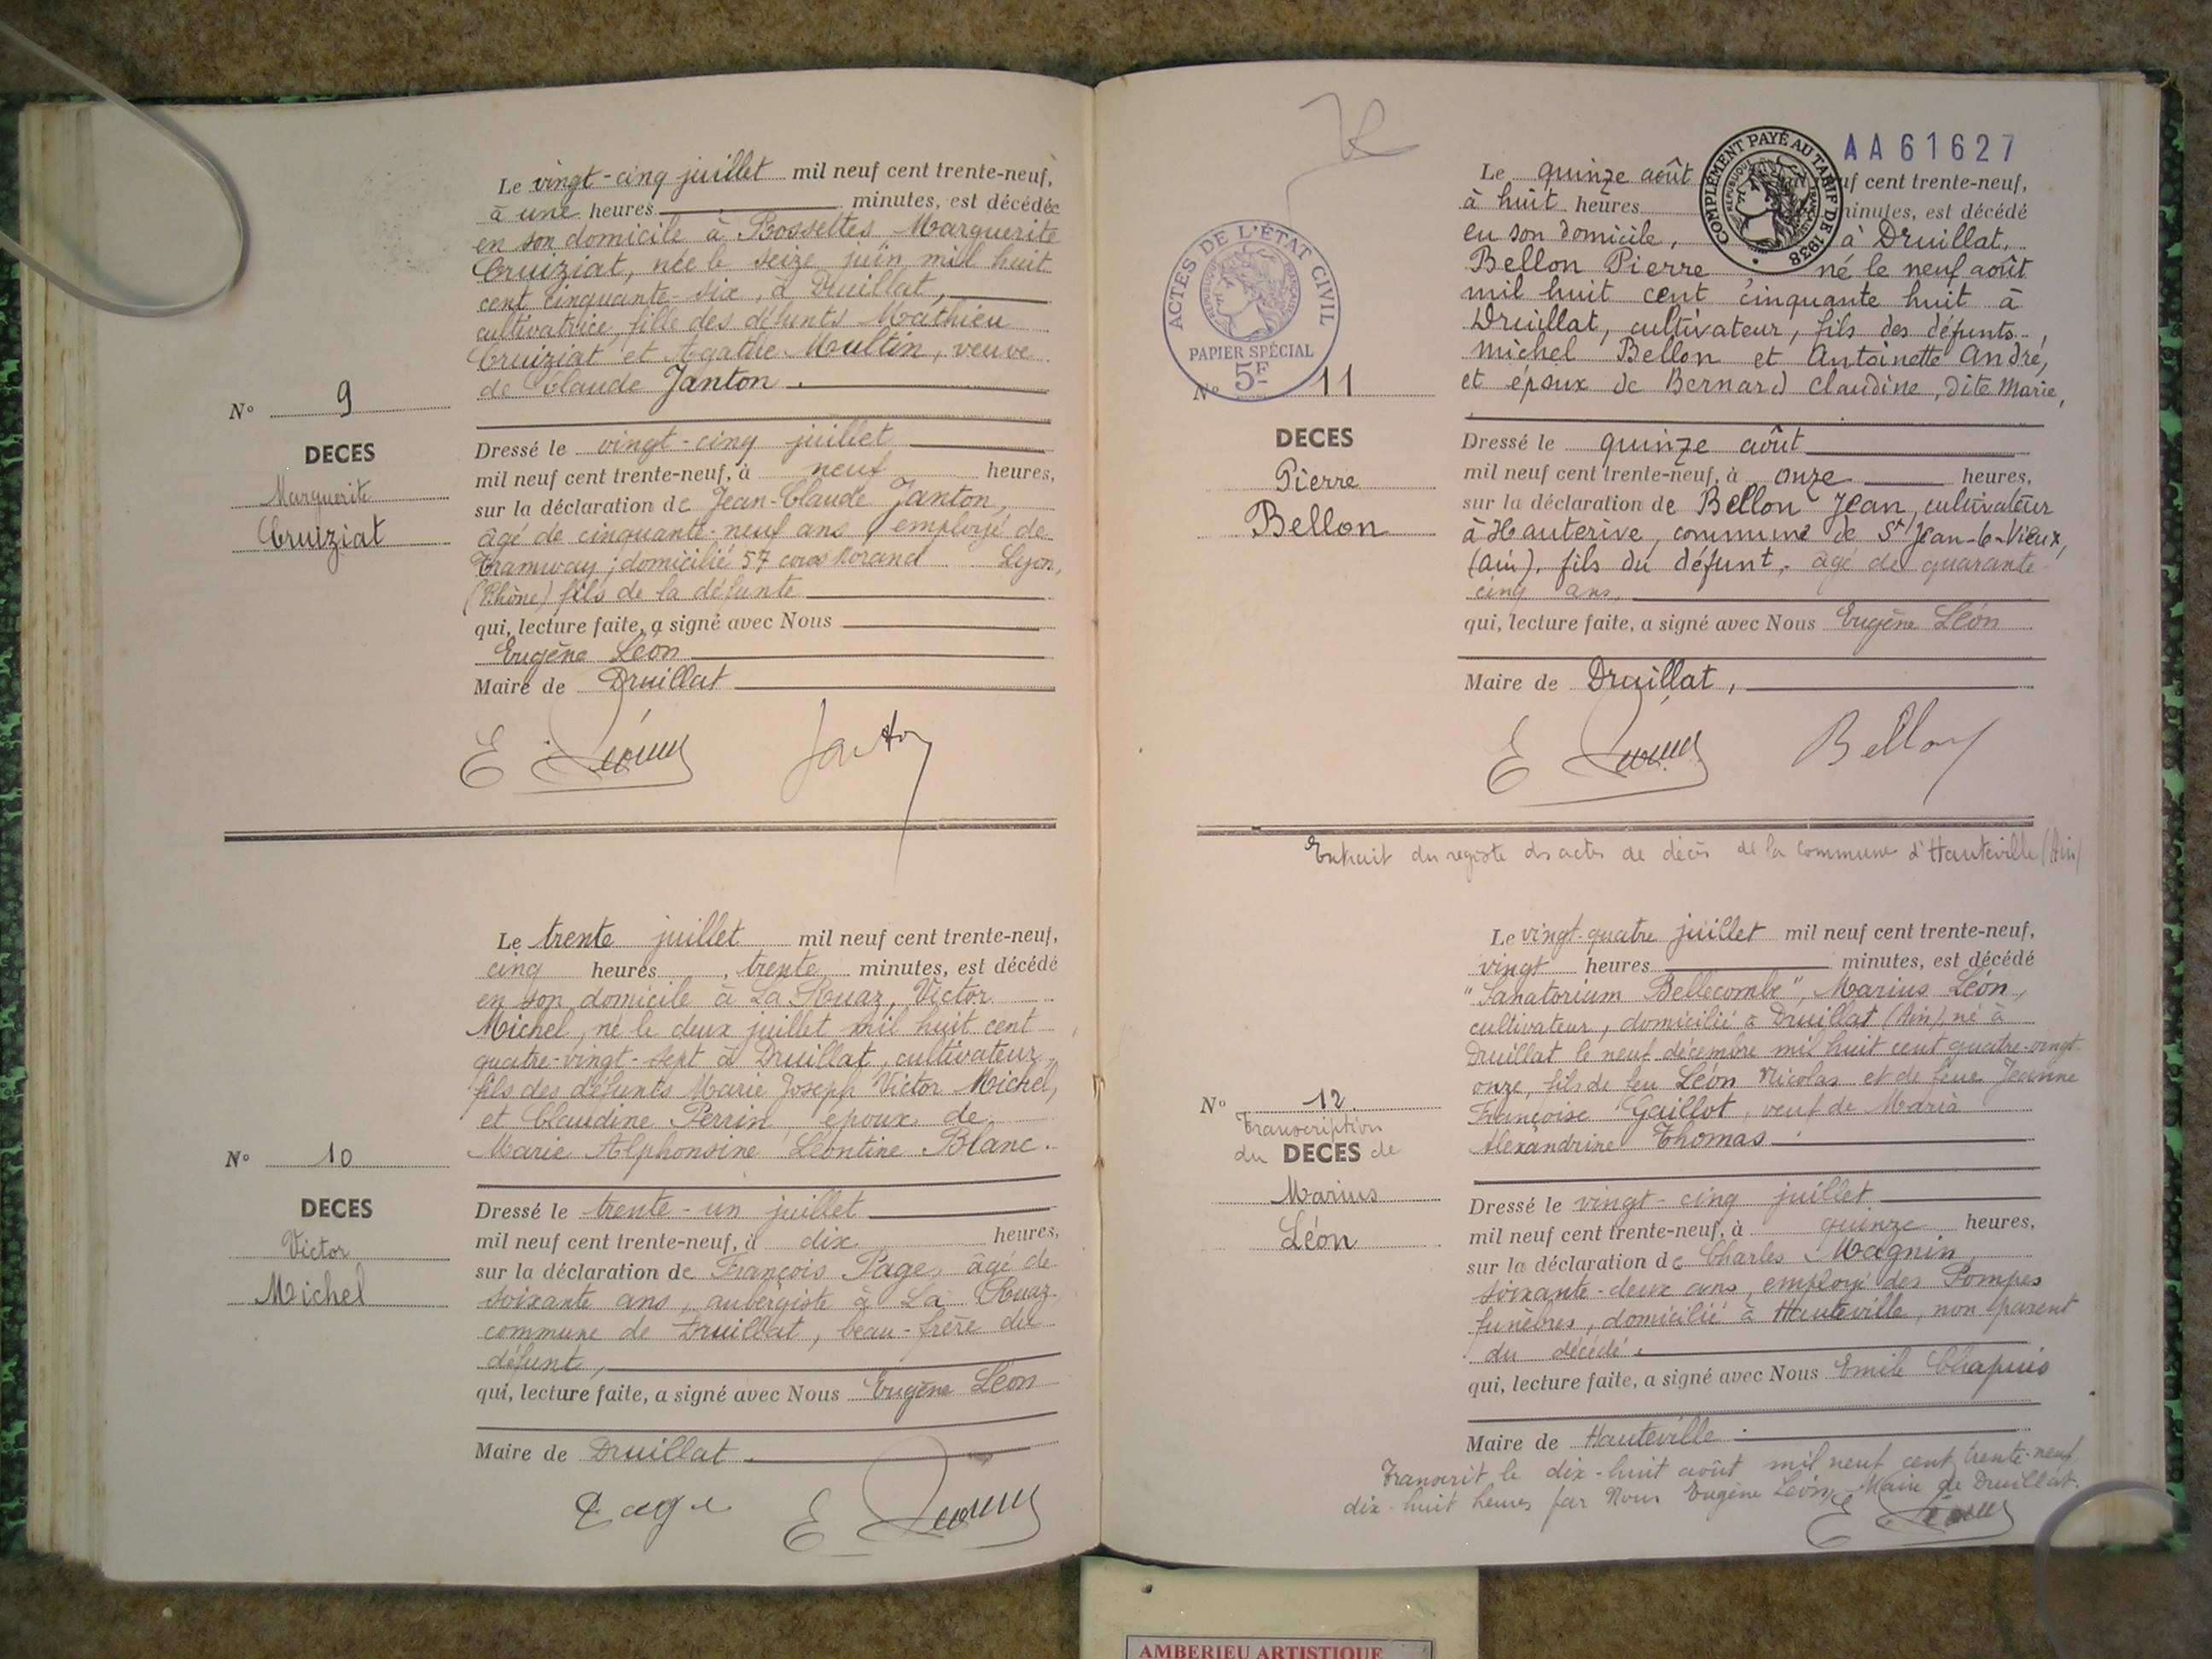 Le vingt-cinq juillet mil neuf cent trente-neuf,
à une heures minutes, est décédée
en son domicile à Rossettes Marguerite
Cruiziat, née le seize juin mill huit
cent cinquante-six, à Druillat,
cultivatrice, fille des défunts Mathieu
Cruiziat et Agathe Multin, veuve
de Claude Janton.
N° 9
DECES
Marguerite
Cruiziat
Dressé le vingt-cinq juillet
mil neuf cent trente-neuf, à neuf heures,
sur la déclaration de Jean-Claude Janton,
âgé de cinquante-neuf ans, employé de
Tramway, domicilié 57 cours Morand Lyon,
(Rhône) fils de la défunte
qui, lecture faite, a signé avec Nous
Eugène Léon
Maire de Druillat
E Léon
Janton
Le trente juillet mil neuf cent trente-neuf,
cinq heures, trente minutes, est décédé
en son domicile à La Ruaz, Victor
Michel, né le deux juillet mil huit cent
quatre-vingt-sept à Druillat, cultivateur,
fils des défunts Marie Joseph Victor Michel,
et Claudine Perrin, époux de
Marie Alphonsine Léontine Blanc.
N° 10
DECES
Victor
Michel
Dressé le trente-un juillet
mil neuf cent trente-neuf, à dix heures,
sur la déclaration de François Page, âgé de
soixante ans, aubergiste à La Ruaz
commune de Druillat, beau-frère du
défunt,
qui, lecture faite, a signé avec Nous Eugène Léon
Maire de Druillat.
Page
E Léon
AA61627
COMPLÉMENT PAYÉ AU TARIF DE 1938
RÉPUBLIQUE FRANÇAISE
ACTES DE L'ÉTAT CIVIL
RÉPUBLIQUE FRANÇAISE
PAPIER SPÉCIAL
5F
Le quinze août uf cent trente-neuf,
à huit heures minutes, est décédé
en son domicile, à Druillat,
Bellon Pierre né le neuf août
mil huit cent cinquante huit à
Druillat, cultivateur, fils des défunts,
Michel Bellon et Antoinette André,
et époux de Bernard Claudine, dite Marie,
N° 11
DECES
Pierre
Bellon
Dressé le quinze août
mil neuf cent trente-neuf, à onze heures,
sur la déclaration de Bellon Jean, cultivateur
à Hauterive, commune de St Jean-le-Vieux,
(Ain), fils du défunt, âgé de quarante
cinq ans,
qui, lecture faite, a signé avec Nous Eugène Léon
Maire de Druillat,
E Léon
Bellon
Extrait du registe ds actes de décès de la commune d'Hauteville (Ain)
Le vingt-quatre juillet mil neuf cent trente-neuf,
vingt heures minutes, est décédé
"Sanatorium Bellecombe", Marius Léon,
cultivateur, domicilié à Druillat (Ain), né à
Druillat le neuf décembre mil huit cent quatre-vingt-
onze, fils de feu Léon Nicolas et de feue Jeanne
Françoise Gaillot, veuf de Maria
Alexandrine Thomas.
N° 12.
Transcription
du DECES de
Marius
Léon
Dressé le vingt-cinq juillet
mil neuf cent trente-neuf, à quinze heures,
sur la déclaration de Charles Magnin,
soixante-deux ans, employé des Pompes
funèbres, domicilié à Hauteville, non parent
du décédé.
qui, lecture faite, a signé avec Nous Emile Chapuis
Maire de Hauteville.
Transcrit le dix-huit août mil neuf cent trente-neuf
dix-huit heures par Nous Eugène Léon, Maire de Druillat.
E Léon
AMBERIEU ARTISTIQUE